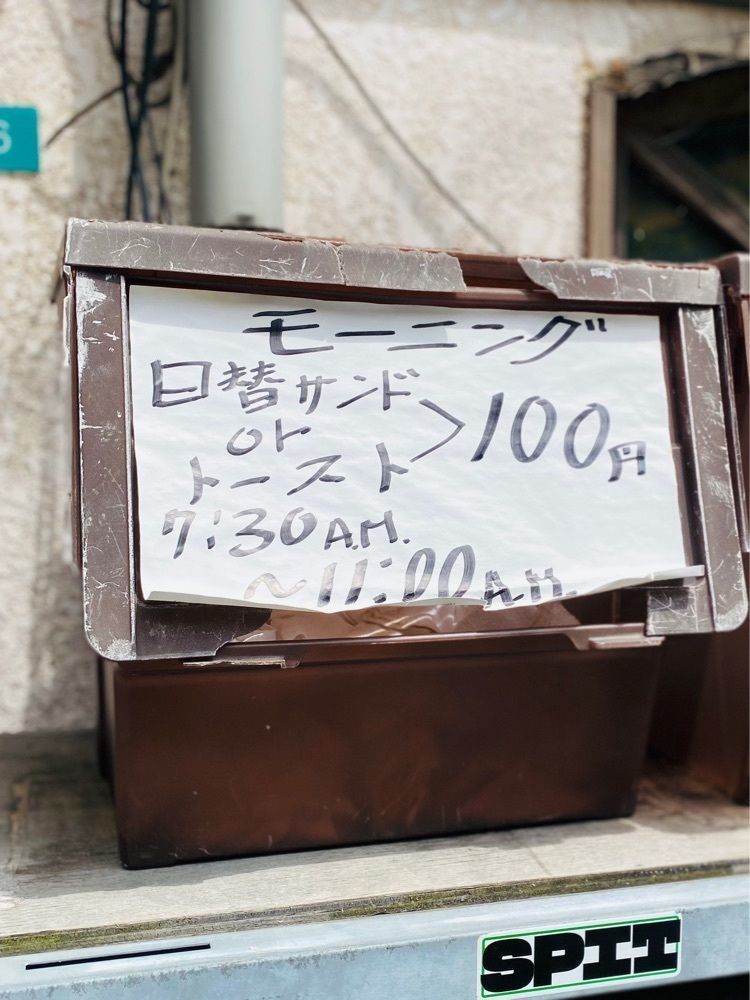 モーニング
日替サンド
or
トースト
> 100円
7:30 A.M.
~11:00 A.M.
SPIT